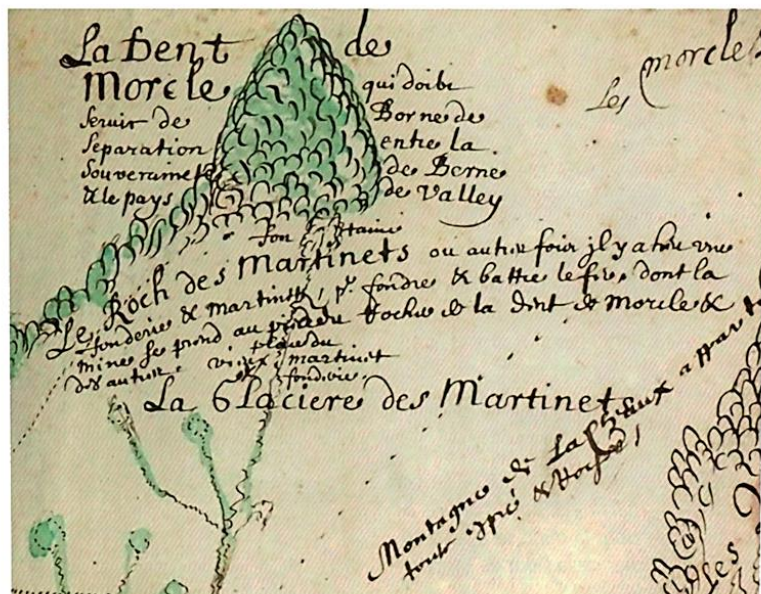 La Dent de
Morcle qui doibt
servir de Borne de
Separation entre la
souveraineté de Berne
& le pays de Valley
Les morcles
fontaine
Le Roch des Martinets ou autrefoir il y a heu une
fonderie & martinets, pr. fondre & battre le fer, dont la
mine se prend au pied du Rocher de la dent de morcle &
des autres
place du
vieux martinet
fonderie
La Glaciere des Martinets
Montagne de La
tout & Roches